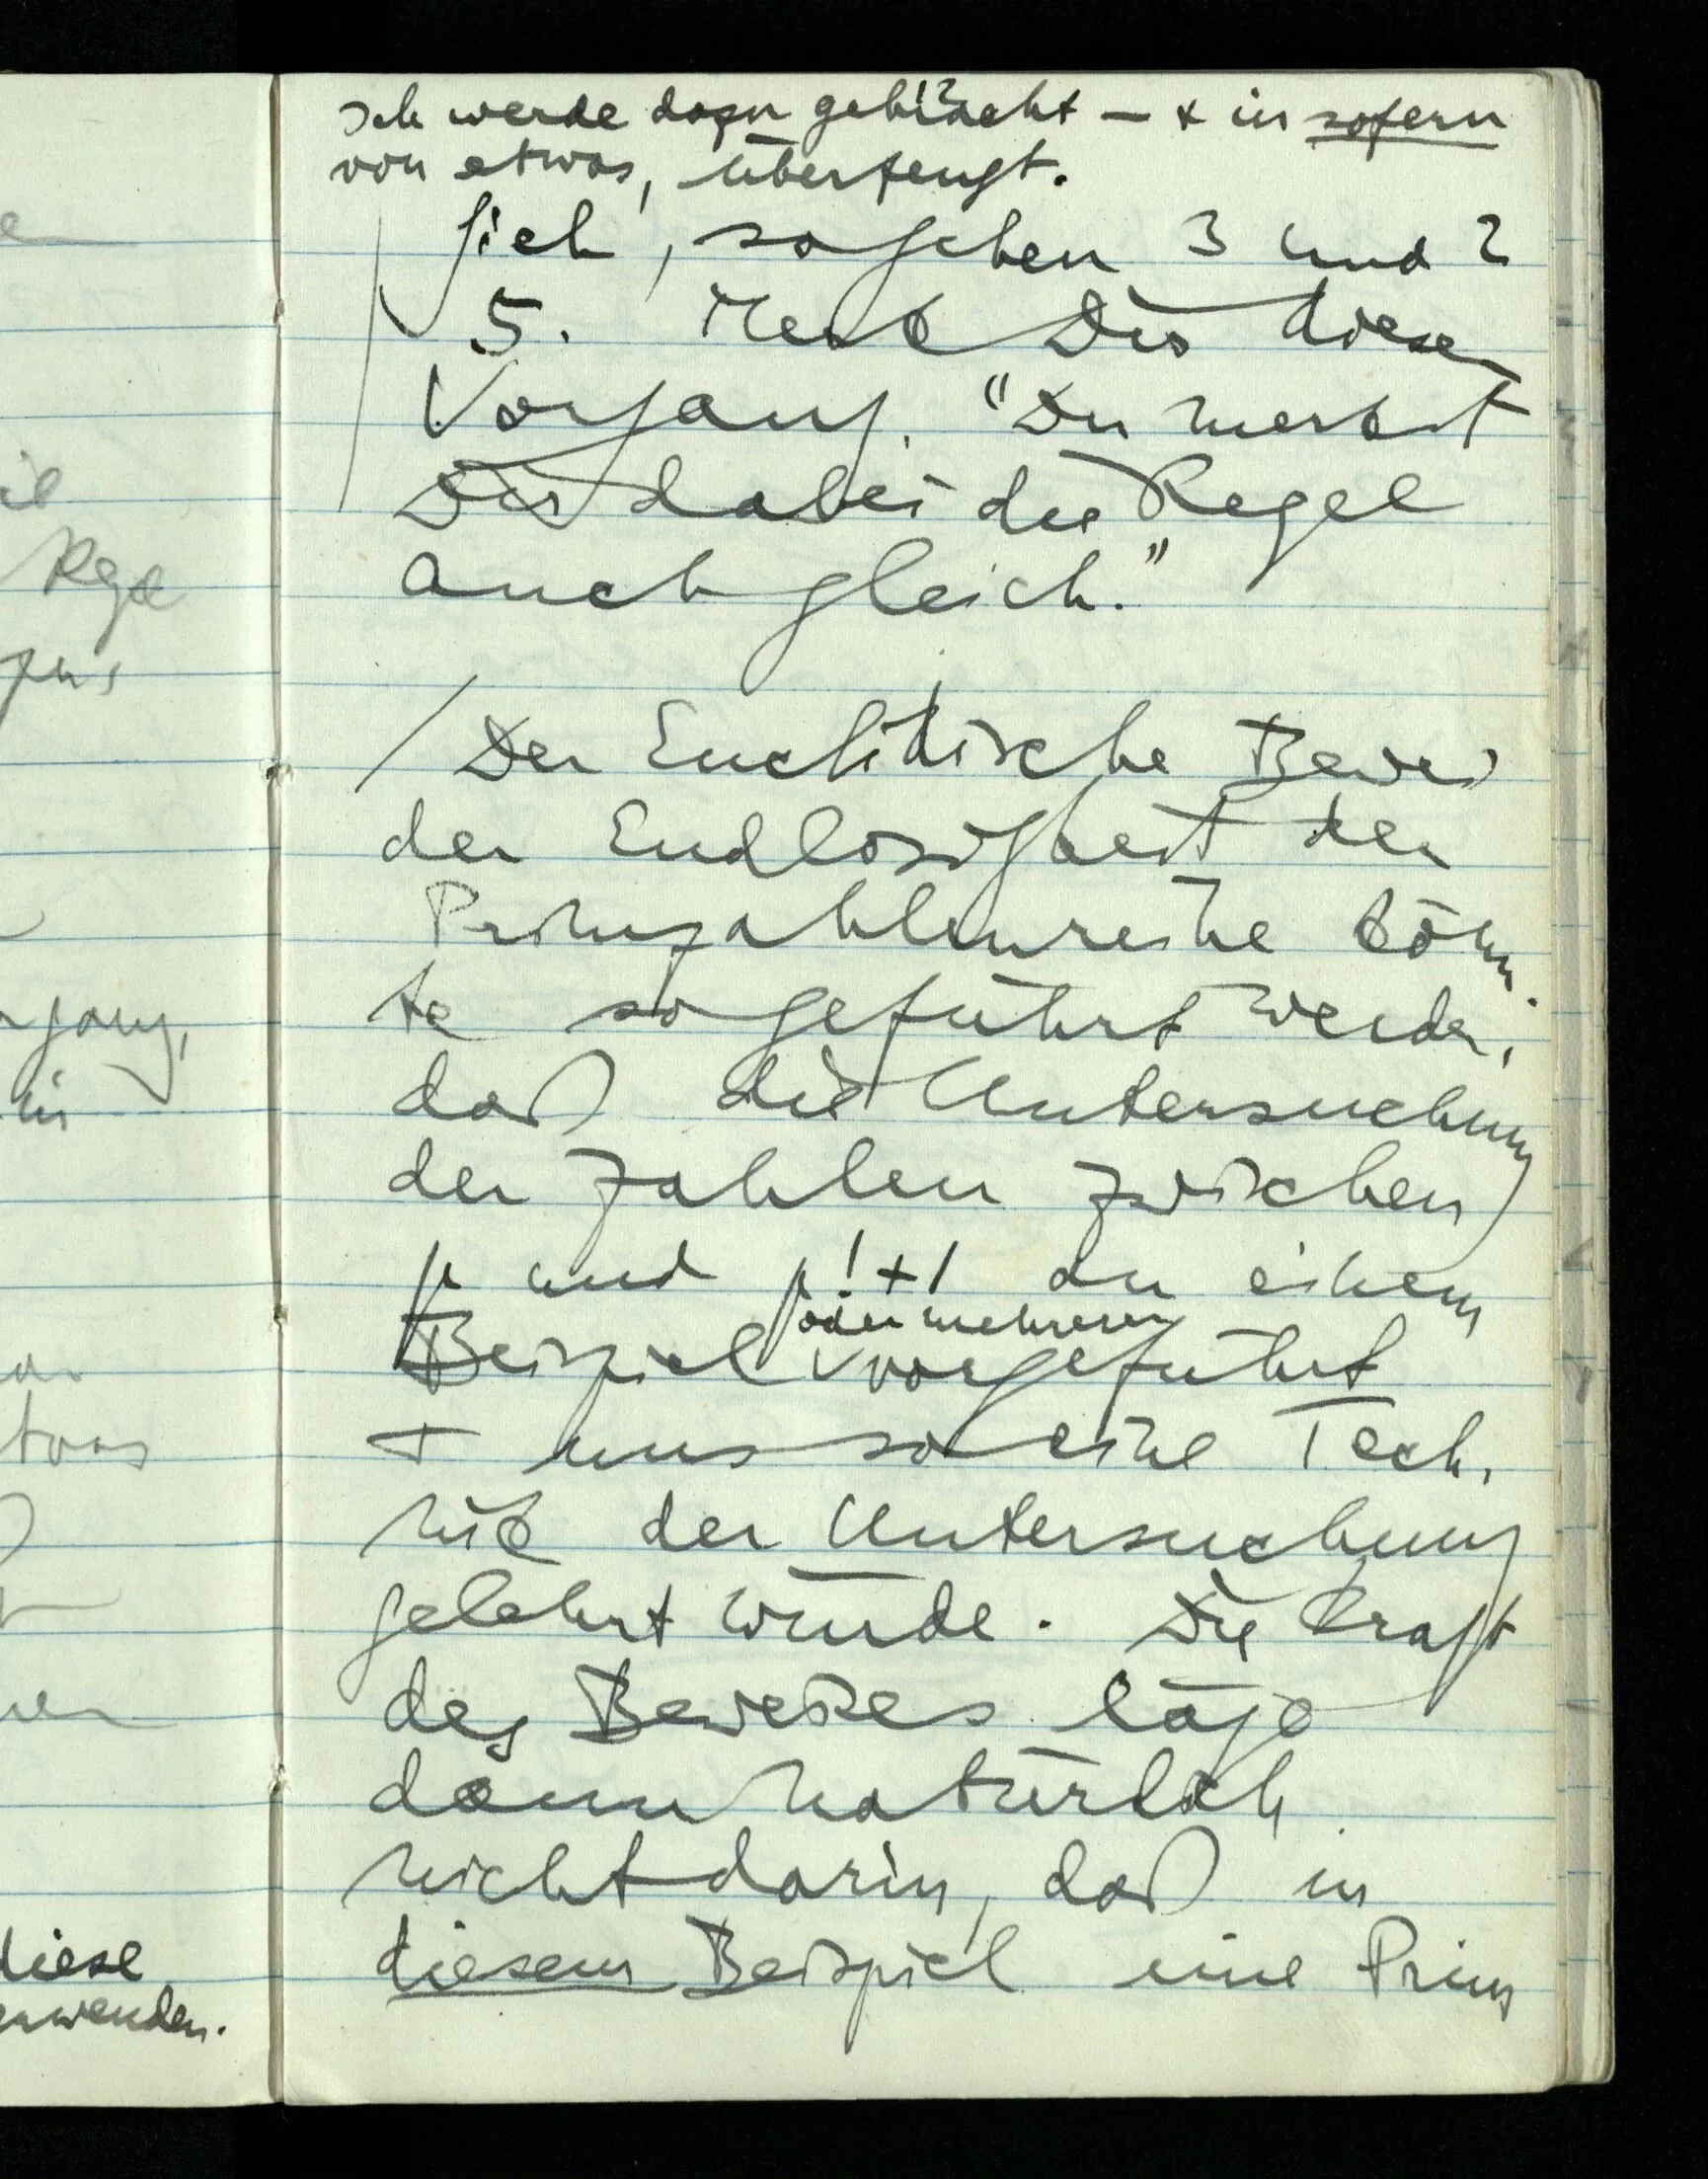 Ich werde dazu gebracht – + in sofern
von etwas, überzeugt.
Sieh, so geben 3 und 2
5. Merk Dir diesen
Vorgang. "Du merkst
Dir dabei die Regel
auch gleich."
/ Der Euclidische Beweis
der Endlosigkeit der
Primzahlenreihe könn-
te so geführt werden,
daß die Untersuchung
der Zahlen zwischen
p und p!+1 an einem
oder mehreren
Beispiel vorgeführt
+ uns so eine Tech-
nik der Untersuchung
gelehrt würde. Die Kraft
des Beweises läge
dann natürlich
nicht darin, daß in
diesem Beispiel eine Prim
il
Regel
gang,
in
etwas
diese
anwenden.